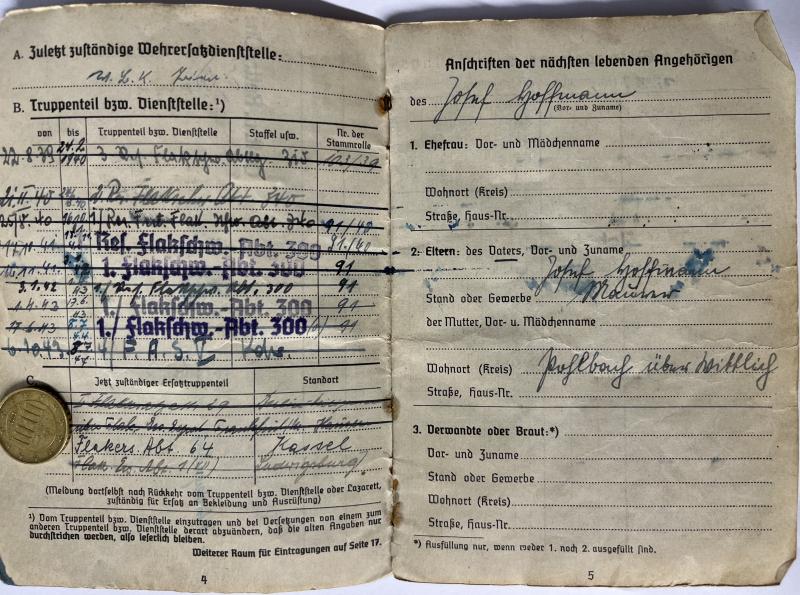 A. Zuletzt zuständige Wehrersatzdienststelle:
W. B. K.
B. Truppenteil bzw. Dienststelle:¹)
von bis Truppenteil bzw. Dienststelle Staffel usw. Nr. der Stammrolle
22.8.39 24.2. 1940 3. Res. Flakschw. 193/39
Abt 320
91/40
Res. Flakschw.-Abt. 300 91/40
1. Flakschw.-Abt. 300 91
3.1.42 91
1.4.43 1./ Flakschw.-Abt. 300 91
17.6.43 1./ Flakschw.-Abt. 300 91
6.10.43
C. Jetzt zuständiger Ersatztruppenteil Standort
Frankfurt
Flakers Abt. 64 Kassel
Ludwigsburg
(Meldung dortselbst nach Rückkehr vom Truppenteil bzw. Dienststelle oder Lazarett,
zuständig für Ersatz an Bekleidung und Ausrüstung)
¹) Vom Truppenteil bzw. Dienststelle einzutragen und bei Versetzungen von einem zum
anderen Truppenteil bzw. Dienststelle derart abzuändern, daß die alten Angaben nur
durchstrichen werden, also leserlich bleiben.
Weiterer Raum für Eintragungen auf Seite 17.
4
Anschriften der nächsten lebenden Angehörigen
des Josef Hoffmann
(Vor- und Zuname)
1. Ehefrau: Vor- und Mädchenname
Wohnort (Kreis)
Straße, Haus-Nr.
2. Eltern: des Vaters, Vor- und Zuname
Josef Hoffmann
Stand oder Gewerbe Maurer
der Mutter, Vor- u. Mädchenname
Wohnort (Kreis) Pohlbach über Wittlich
Straße, Haus-Nr.
3. Verwandte oder Braut:*)
Vor- und Zuname
Stand oder Gewerbe
Wohnort (Kreis)
Straße, Haus-Nr.
*) Ausfüllung nur, wenn weder 1. noch 2. ausgefüllt sind.
5